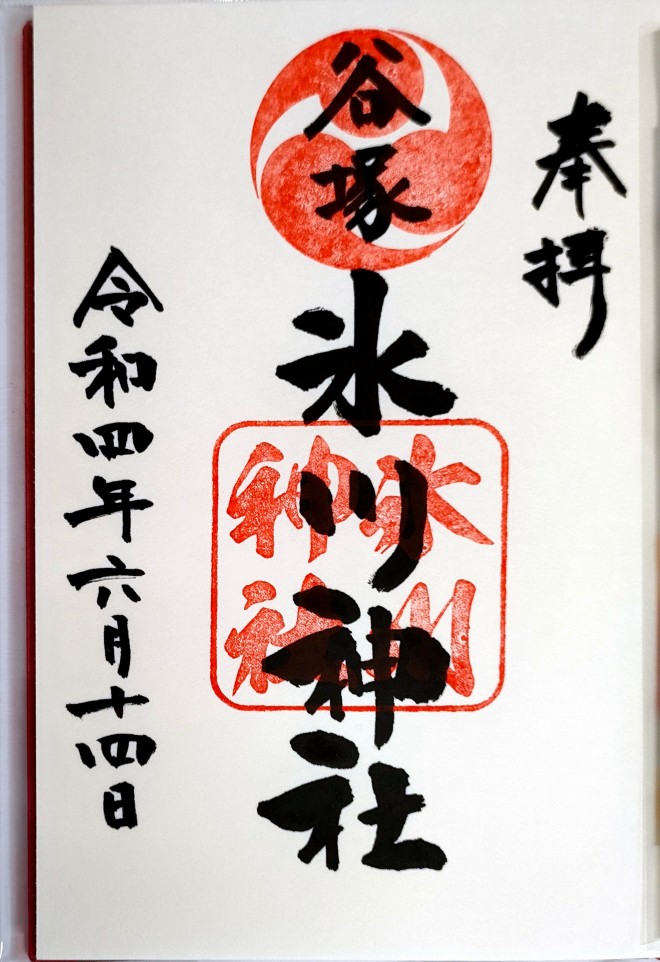 奉拝
谷塚氷川神社
氷川
神社
令和四年六月十四日